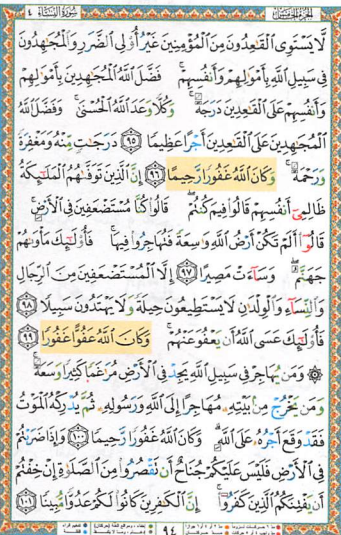 الجزء الخامس سورة النساء ٤
لَّا يَسْتَوِى ٱلْقَـٰعِدُونَ مِنَ ٱلْمُؤْمِنِينَ غَيْرُ أُو۟لِى ٱلضَّرَرِ وَٱلْمُجَـٰهِدُونَ
فِى سَبِيلِ ٱللَّهِ بِأَمْوَٰلِهِمْ وَأَنفُسِهِمْ ۚ فَضَّلَ ٱللَّهُ ٱلْمُجَـٰهِدِينَ بِأَمْوَٰلِهِمْ
وَأَنفُسِهِمْ عَلَى ٱلْقَـٰعِدِينَ دَرَجَةً ۚ وَكُلًّا وَعَدَ ٱللَّهُ ٱلْحُسْنَىٰ ۚ وَفَضَّلَ ٱللَّهُ
ٱلْمُجَـٰهِدِينَ عَلَى ٱلْقَـٰعِدِينَ أَجْرًا عَظِيمًا ٩٥ دَرَجَـٰتٍ مِّنْهُ وَمَغْفِرَةً
وَرَحْمَةً ۚ وَكَانَ ٱللَّهُ غَفُورًا رَّحِيمًا ٩٦ إِنَّ ٱلَّذِينَ تَوَفَّىٰهُمُ ٱلْمَلَـٰٓئِكَةُ
ظَالِمِىٓ أَنفُسِهِمْ قَالُوا۟ فِيمَ كُنتُمْ ۖ قَالُوا۟ كُنَّا مُسْتَضْعَفِينَ فِى ٱلْأَرْضِ ۚ
قَالُوٓا۟ أَلَمْ تَكُنْ أَرْضُ ٱللَّهِ وَٰسِعَةً فَتُهَاجِرُوا۟ فِيهَا ۚ فَأُو۟لَـٰٓئِكَ مَأْوَىٰهُمْ
جَهَنَّمُ ۖ وَسَآءَتْ مَصِيرًا ٩٧ إِلَّا ٱلْمُسْتَضْعَفِينَ مِنَ ٱلرِّجَالِ
وَٱلنِّسَآءِ وَٱلْوِلْدَٰنِ لَا يَسْتَطِيعُونَ حِيلَةً وَلَا يَهْتَدُونَ سَبِيلًا ٩٨
فَأُو۟لَـٰٓئِكَ عَسَى ٱللَّهُ أَن يَعْفُوَ عَنْهُمْ ۚ وَكَانَ ٱللَّهُ عَفُوًّا غَفُورًا ٩٩
۞ وَمَن يُهَاجِرْ فِى سَبِيلِ ٱللَّهِ يَجِدْ فِى ٱلْأَرْضِ مُرَٰغَمًا كَثِيرًا وَسَعَةً ۚ
وَمَن يَخْرُجْ مِنۢ بَيْتِهِۦ مُهَاجِرًا إِلَى ٱللَّهِ وَرَسُولِهِۦ ثُمَّ يُدْرِكْهُ ٱلْمَوْتُ
فَقَدْ وَقَعَ أَجْرُهُۥ عَلَى ٱللَّهِ ۗ وَكَانَ ٱللَّهُ غَفُورًا رَّحِيمًا ١٠٠ وَإِذَا ضَرَبْتُمْ
فِى ٱلْأَرْضِ فَلَيْسَ عَلَيْكُمْ جُنَاحٌ أَن تَقْصُرُوا۟ مِنَ ٱلصَّلَوٰةِ إِنْ خِفْتُمْ
أَن يَفْتِنَكُمُ ٱلَّذِينَ كَفَرُوٓا۟ ۚ إِنَّ ٱلْكَـٰفِرِينَ كَانُوا۟ لَكُمْ عَدُوًّا مُّبِينًا ١٠١
٩٤